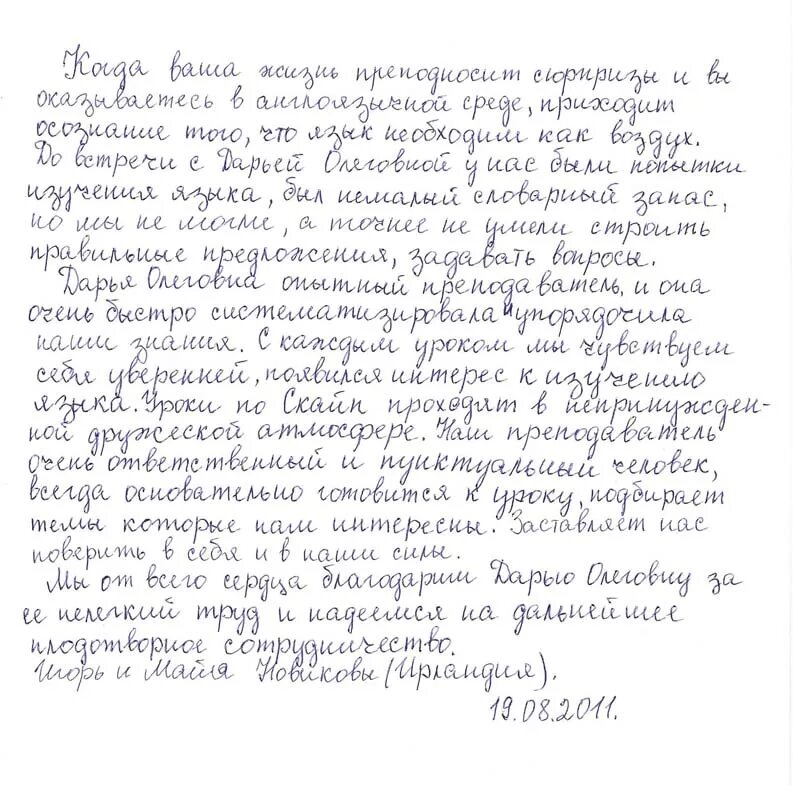 Когда ваша жизнь преподносит сюрпризы и вы
оказываетесь в англоязычной среде, приходит
осознание того, что язык необходим как воздух.
До встречи с Дарьей Олеговной у нас были попытки
изучения языка, был немалый словарный запас,
но мы не могли, а точнее не умели строить
правильные предложения, задавать вопросы.
Дарья Олеговна опытный преподаватель, и она
очень быстро систематизировала и упорядочила
наши знания. С каждым уроком мы чувствуем
себя уверенней, появился интерес к изучению
языка. Уроки по Скайп проходят в непринужден-
ной дружеской атмосфере. Наш преподаватель
очень ответственный и пунктуальный человек,
всегда основательно готовится к уроку, подбирает
темы которые нам интересны. Заставляет нас
поверить в себя и в наши силы.
Мы от всего сердца благодарим Дарью Олеговну за
ее нелегкий труд и надеемся на дальнейшее
плодотворное сотрудничество.
Игорь и Майя Новиковы (Ирландия).
19.08.2011.